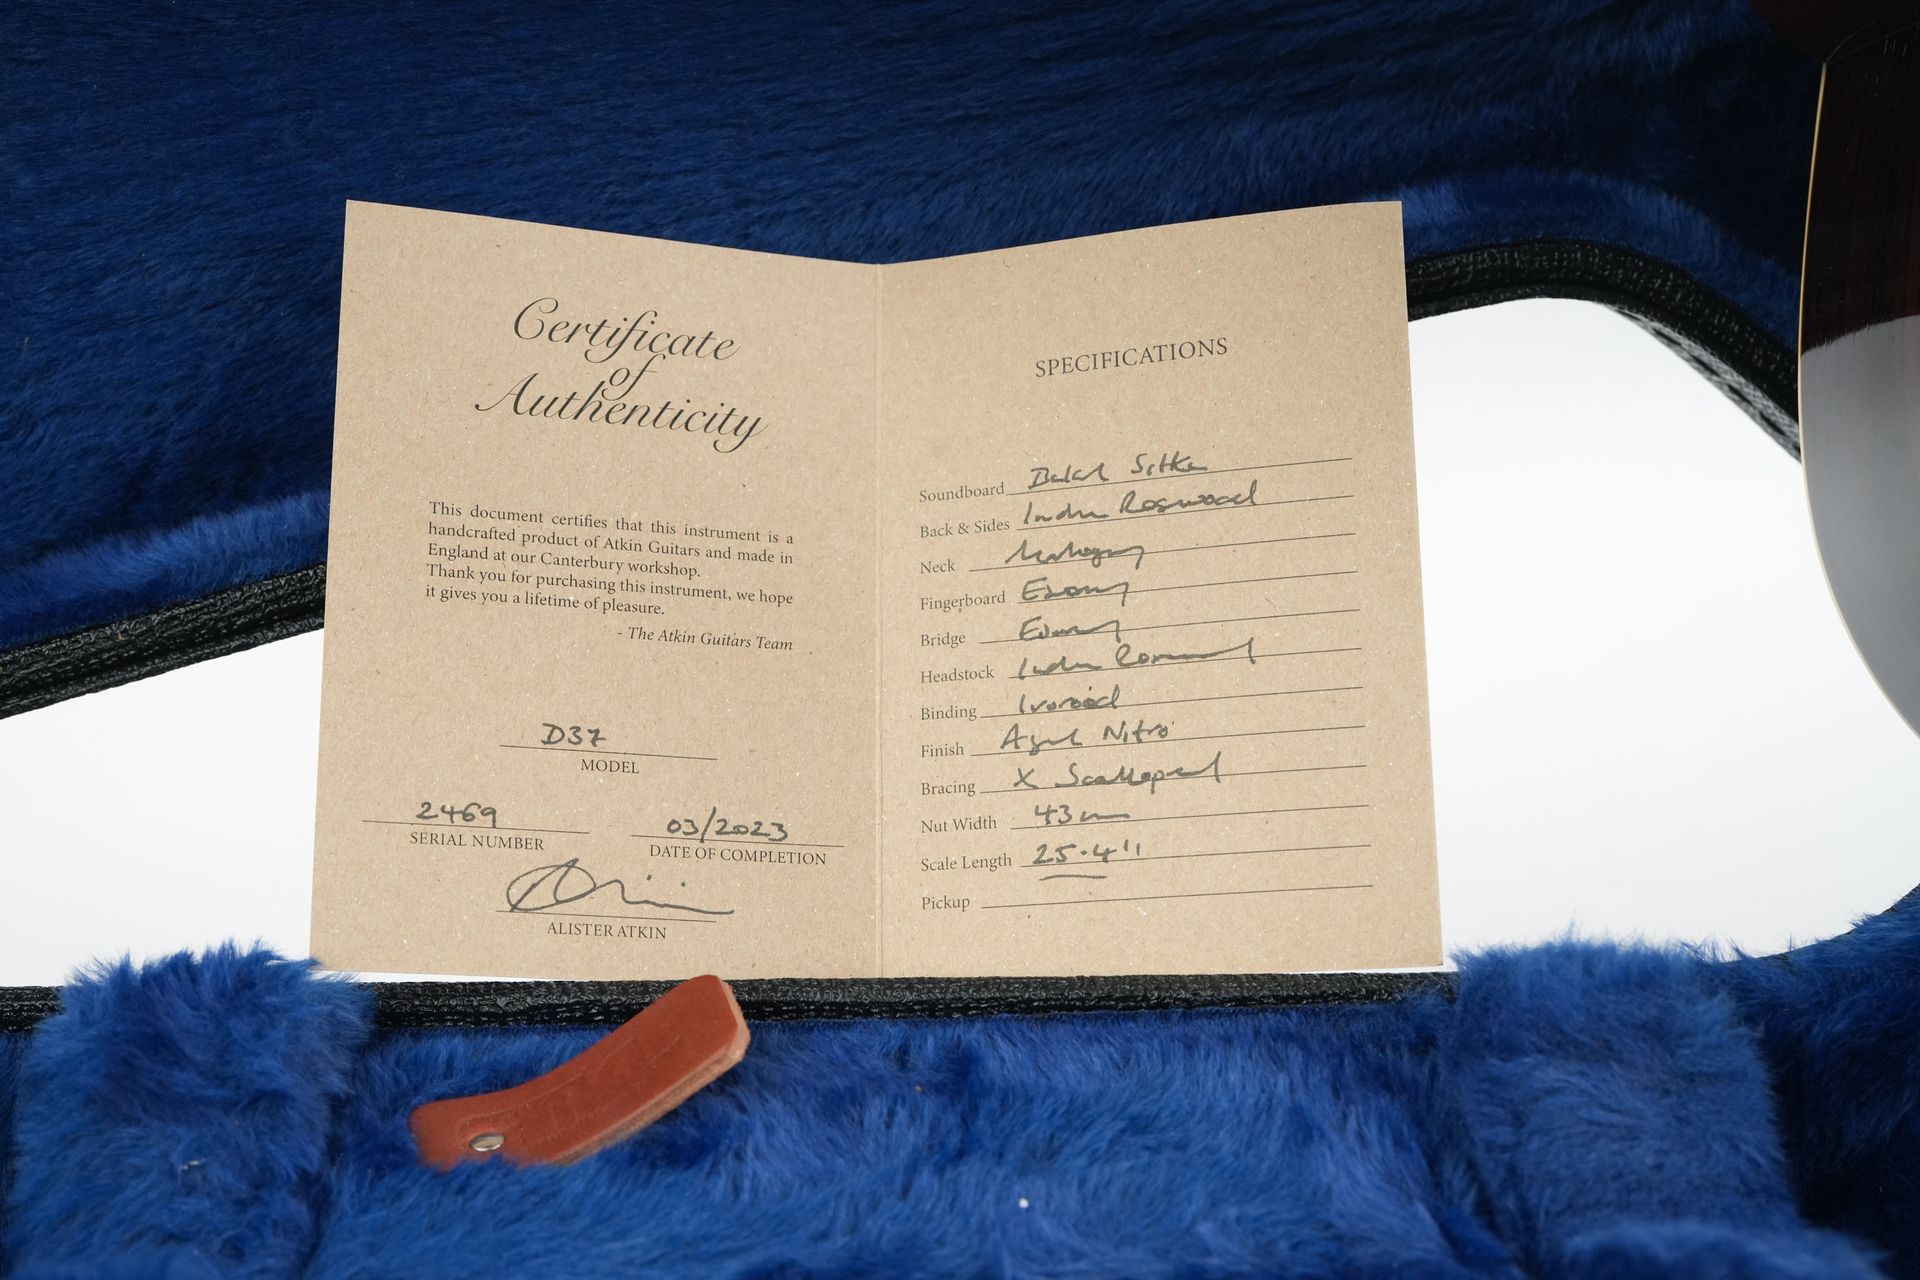 Certificate
of
Authenticity
This document certifies that this instrument is a
handcrafted product of Atkin Guitars and made in
England at our Canterbury workshop.
Thank you for purchasing this instrument, we hope
it gives you a lifetime of pleasure.
- The Atkin Guitars Team
D37
MODEL
2469
SERIAL NUMBER
03/2023
DATE OF COMPLETION
ALISTER ATKIN
SPECIFICATIONS
Soundboard Baked Sitka
Back & Sides Indian Rosewood
Neck Mahogany
Fingerboard Ebony
Bridge Ebony
Headstock Indian Rosewood
Binding Ivoroid
Finish Aged Nitro
Bracing X Scalloped
Nut Width 43mm
Scale Length 25.4"
Pickup